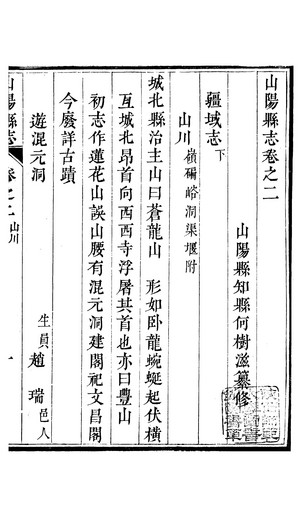 山陽縣志卷之二
山陽縣知縣何樹滋纂修
疆域志下
山川嶺碥峪洞渠堰附
城北縣治主山曰蒼龍山　形如卧龍蜿蜒起伏橫
亙城北昂首向西西寺浮屠其首也亦曰豐山
初志作蓮花山誤山腰有混元洞建閣祀文昌閣
今廢詳古蹟
遊混元洞
生員趙瑞邑人
山陽縣志
卷之二
山川
一